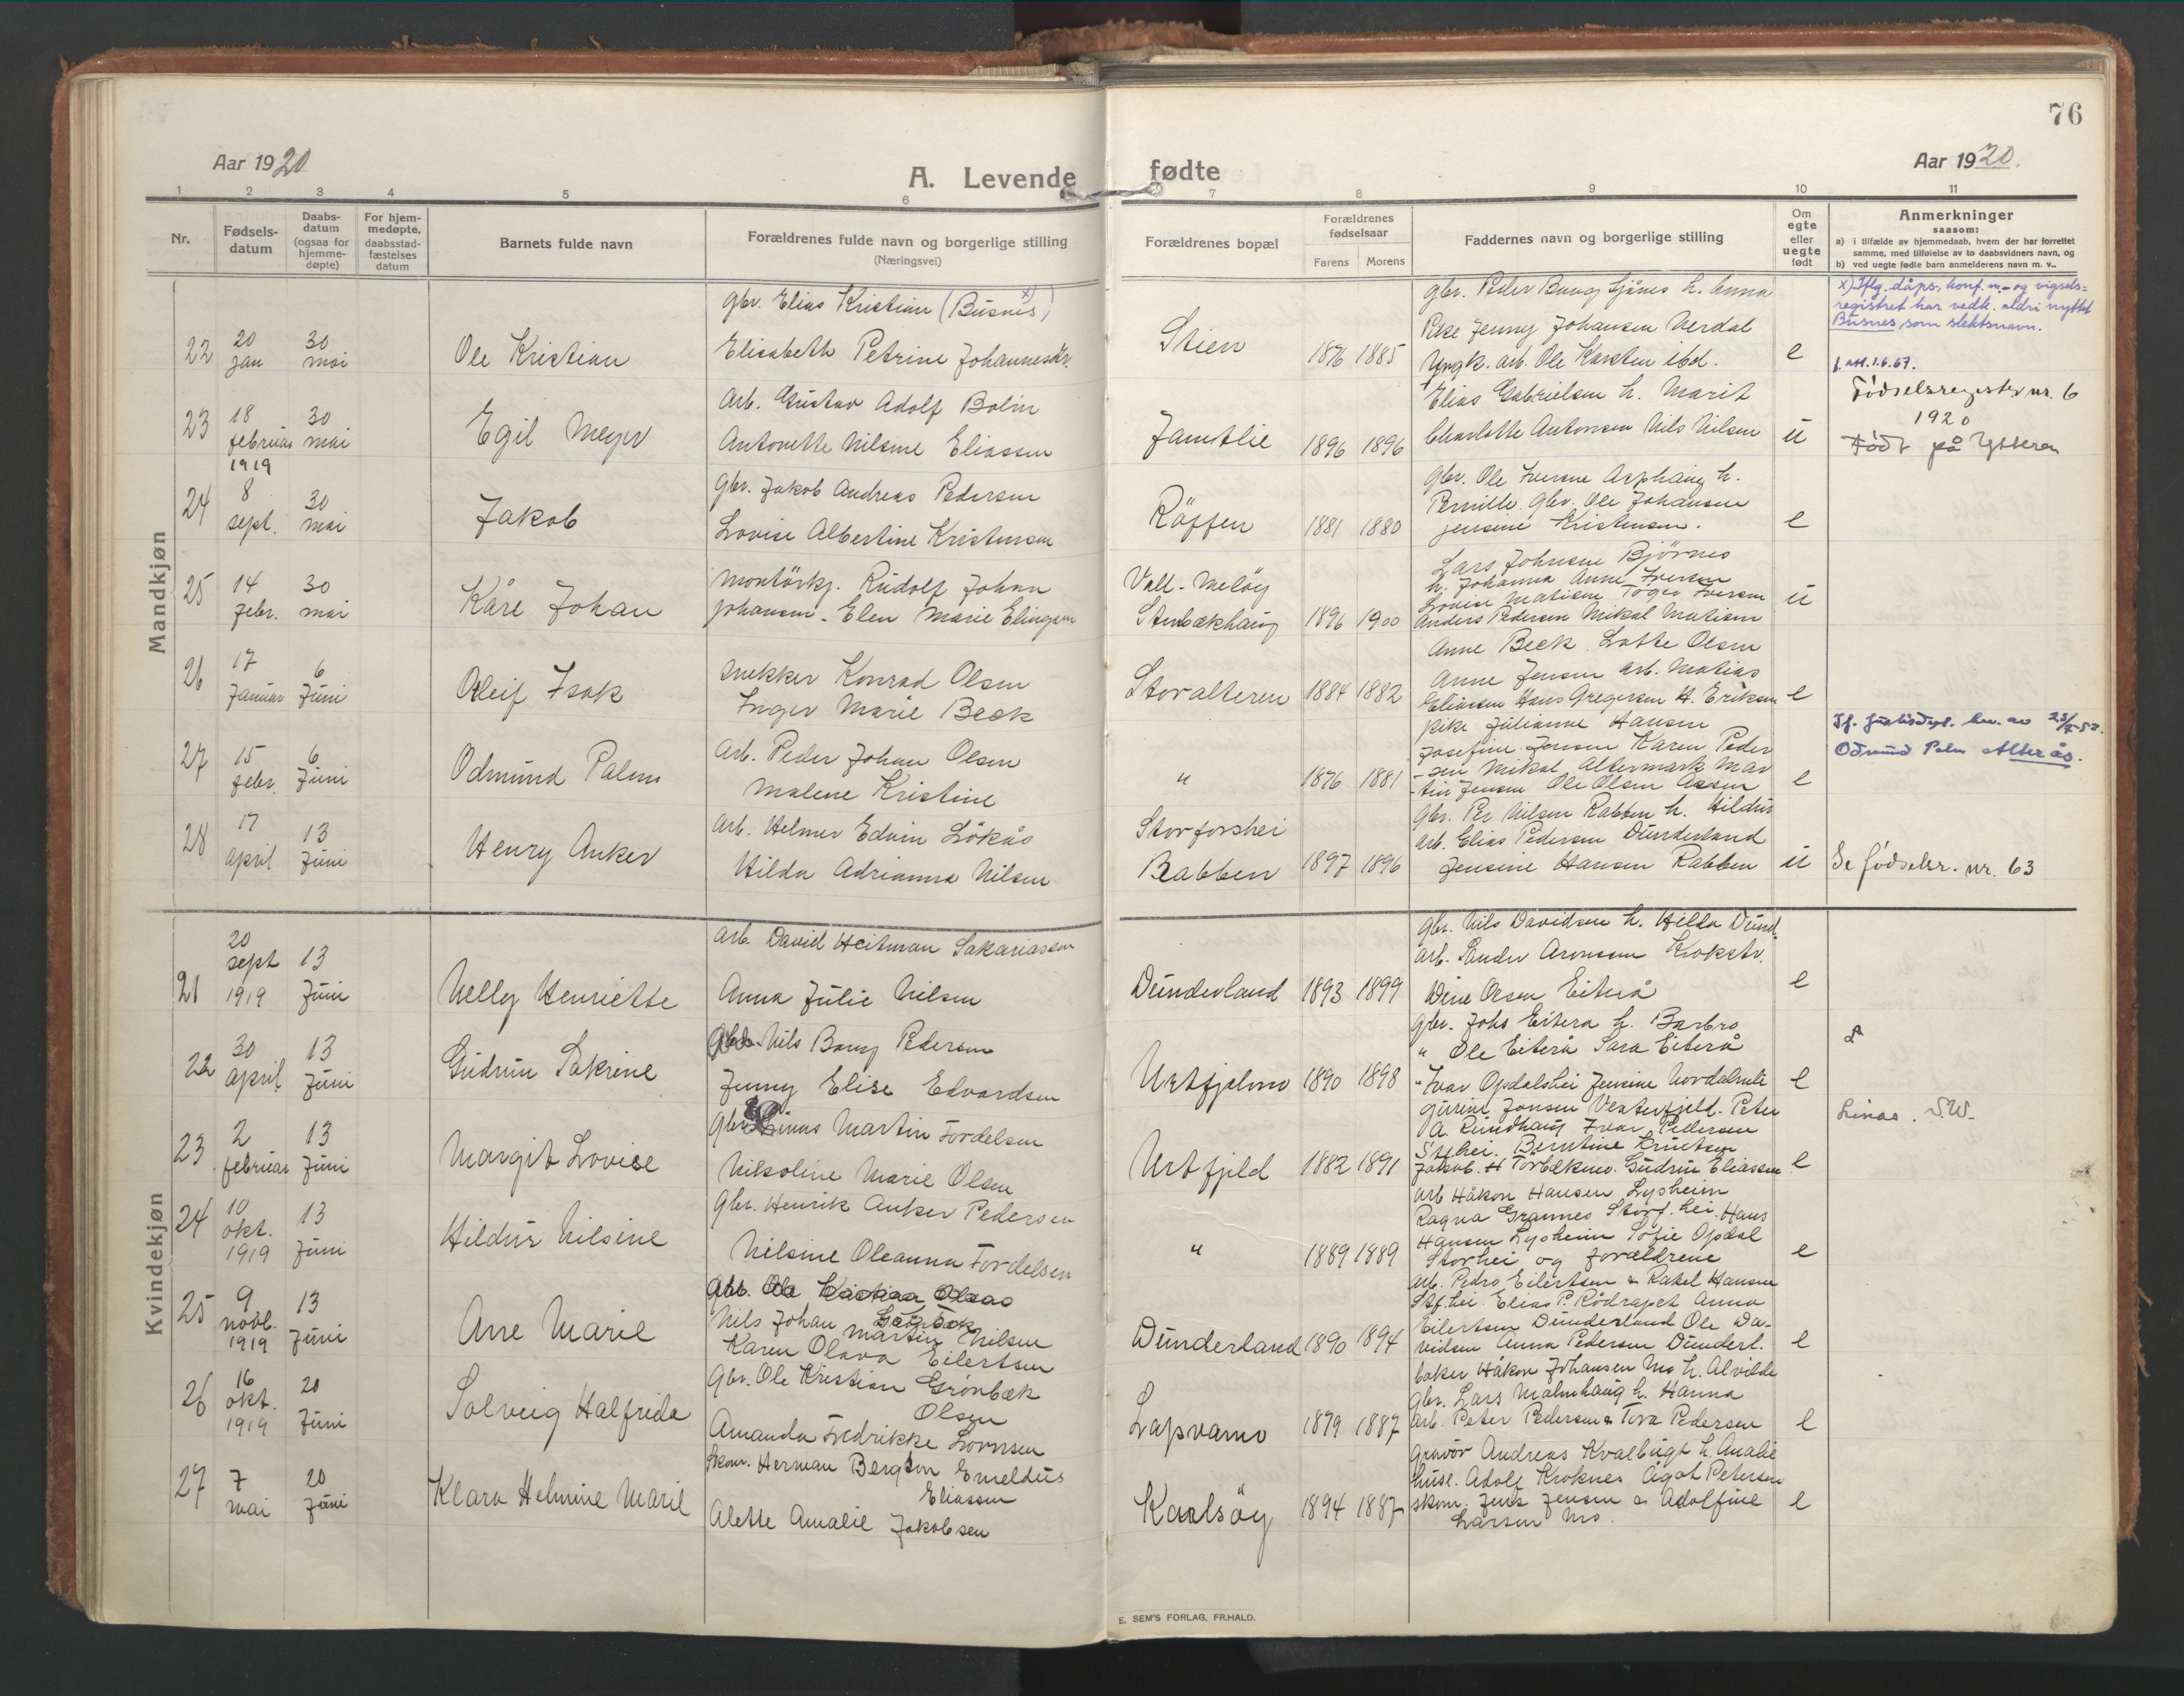 76
Aar 1920
A. Levende fødte
Aar 1920.
1 2 3 4 5 6 7 8 9 10 11
Nr.
Fødsels-datum
Daabs-datum (ogsaa for hjemme-døpte)
For hjem-medøpte, daabsstad-fæstelses datum
Barnets fulde navn
Forældrenes fulde navn og borgerlige stilling
(Næringsvei)
Forældrenes bopæl
Forældrenes fødselsaar
Farens Morens
Faddernes navn og borgerlige stilling
Om egte eller uegte født
Anmerkninger
saasom:
a) i tilfælde av hjemmedaab, hvem der har forrettet
samme, med tilføielse av to daabsvidners navn, og
b) ved uegte fødte barn anmelderens navn m. v..
Mandkjøn
22
20 jan
30 mai
Ole Kristian
gbr. Elias Kristian (Busnes x))
Elisabeth Petrine Johannesdr.
Stien
1876 1885
gbr. Peder Bang Sjånes h. Anna
Pike Jenny Johansen Nerdal
Ungk. arb. Ole Karsten ibd.
e
x) Iflg. dåps-, konf. m.- og vigsels-
registret har vedk. aldri nyttet
Busnes som slektsnavn.
f. att. 1.6.67.
23
18 februar
30 mai
Egil Meyer
Arb. Gustav Adolf Bolin
Antonette Nilsine Eliassen
Jamtlie
1896 1896
Elias Gabrielsen h. Marit
Charlotte Antonsen Nils Nilsen
u
Fødselsregister nr. 6
1920
Født på Ytteren
24
1919
8 sept.
30 mai
Jakob
gbr. Jakob Andreas Pedersen
Lovise Albertine Kristensen
Röffen
1881 1880
gbr. Ole Iversen Asphaug h.
Pernille. gbr. Ole Johansen
Jensine Kristensen.
e
25
14 febr.
30 mai
Kåre Johan
Montörkj. Rudolf Johan
Johansen - Elen Marie Elingsen
Vall - Melöy
Stenbækhaug
1896 1900
Lars Johnsen Bjørnes
h. Johanna Anne Iversen
Lovise Matisen Toger Iversen
Anders Pedersen Mikal Matisen
u
26
17 Januar
6 Juni
Oleif Isak
Snekker Konrad Olsen
Inger Marie Beck
Storalteren
1884 1882
Anne Beck. Lotte Olsen
Anne Jensen arb. Matias
Eliassen Hans Gregersen H. Eriksen
e
27
15 febr.
6 Juni
Odmund Palm
Arb. Peder Johan Olsen
Malene Kristine
"
1876 1881
Pike Julianne Hansen
Josefine Jensen Karen Peder
-sen Mikal Altermark Mar
-tin Jensen Ole Olsen Aasen
e
Odmund Palm Alterås.
28
17 april
13 Juni
Henry Anker
Arb. Helmer Edvin Lökås
Hilda Adrianna Nilsen
Storforshei
Rabben
1897 1896
gbr. Per Nilsen Rabben h. Hildur
arb. Elias Pedersen Dunderland
Jensine Hansen Rabben
u
Se fødselsr. nr. 63
Kvindekjøn
21
20 sept 1919
13 Juni
Nelly Henriette
arb. David Heitman Sakariassen
Anna Julie Nilsen
Dunderland
1893 1899
gbr. Nils Davidsen h. Hilda Dund.
arb. Sander Aronsen Krokstr.
Dine Olsen Eiterå
e
22
30 april
13 Juni
Gudrun Sakrine
Gbr. Nils Bang Pedersen
Jenny Elise Edvardsen
Urtfjelmo
1890 1898
gbr. Johs Eitera h. Barbro
" Ole Eiterå Sara Eiterå
" Ivar Opdalshei Jensine Nordalmli
e
23
2 februar
13 Juni
Margit Lovise
gbr. Linus Martin Fordelsen
Nilsoline Marie Olsen
Urtfjeld
1882 1891
Gurine Jonsen Vesterfjeld. Peter
A. Rundhaug Ivar Pedersen
St.hei. Berntine Knutsen
Jakob. H Torbækmo. Gudrun Eliassen
e
Linas. S.W.
24
10 okt. 1919
13 Juni
Hildur Nilsine
gbr. Henrik Anker Pedersen
Nilsine Oleanna Fordelsen
"
1889 1889
Arb Håkon Hansen Lysheim
Ragna Grannes Storf. hei. Hans
Hansen Lysheim Sofie Opdal
Storhei og forældrene
e
25
9 novb. 1919
13 Juni
Anne Marie
Nils Johan Martin Nilsen
Karen Olava Eilertsen
Dunderland
1890 1894
arb. Pedro Eilertsen & Rakel Hansen
Stf.hei. Elias P. Rödrapet Anna
Eilertsen Dunderland Ole Da-
vidsen Anna Pedersen Dunderl.
e
26
16 okt. 1919
20 Juni
Solveig Halfrida
Gbr. Ole Kristian Grønbæk
Olsen
Amanda Fredrikke Lorensen
Lapvamo
1879 1887
baker Håkon Johansen Mo h. Alvilde
gbr. Lars Malmhaug h. Hanna
arb. Peter Pedersen & Tora Pedersen
e
27
7 mai
20 Juni
Klara Helmine Marie
Skom. Herman Bergton Emeldus
Eliassen
Alette Amalie Jakobsen
Karlsöy
1894 1887
Gravör Andreas Kvalbugt h. Amalie
huse. Adolf Kroknes Ågot Petersen
skom. Jens Jensen & Adolfine
Larsen Mo.
e
E. SEM'S FORLAG, FR.HALD.